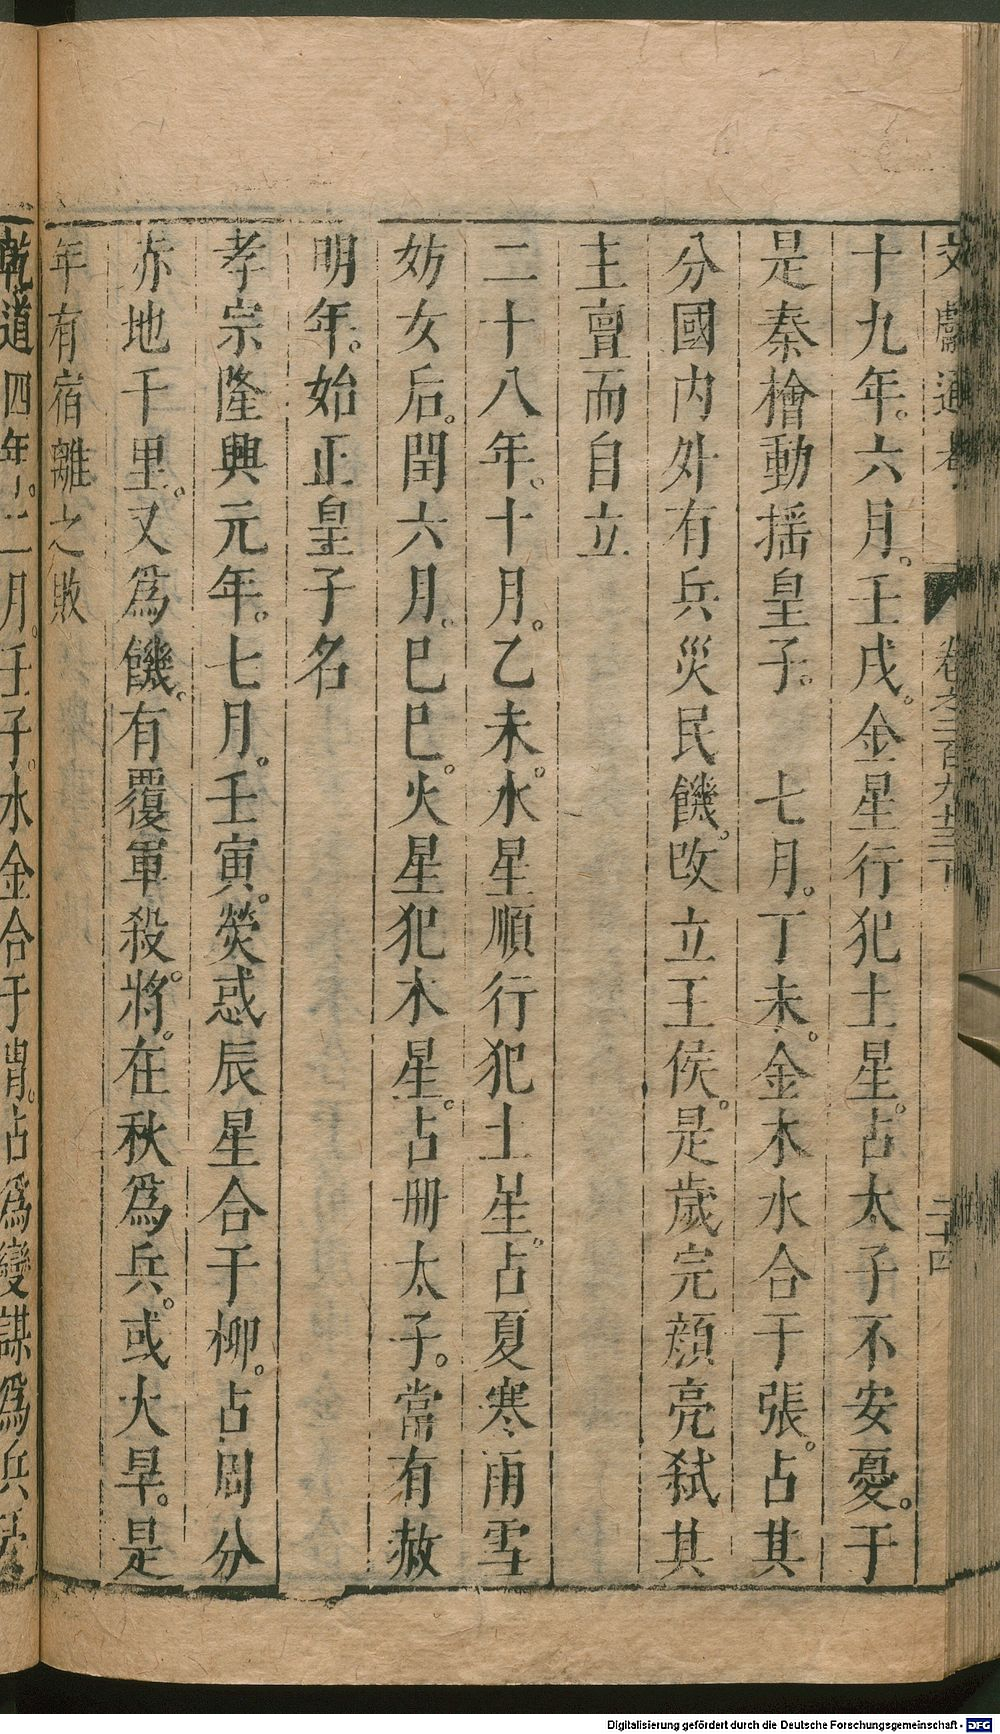 文獻通考 卷之二百九十三下 二十四
十九年。六月。壬戌。金星行犯土星。占太子不安憂。于
是秦檜動揺皇子。 七月。丁未。金木水合于張。占其
分國内外有兵災民饑。改立王侯。是歲完顔亮弒其
主亶而自立
二十八年。十月。乙未。水星順行犯土星。占夏寒雨雪
妨女后。閏六月。巳巳。火星犯木星。占册太子。當有赦
明年。始正皇子名
孝宗隆興元年。七月。壬寅。熒惑辰星合于柳。占周分
赤地千里。又爲饑。有覆軍殺將。在秋爲兵。或大旱。是
年有宿離之敗
乾道四年。二月。壬子。水金合于胃。占爲變謀爲兵
Digitalisierung gefördert durch die Deutsche Forschungsgemeinschaft - DFG